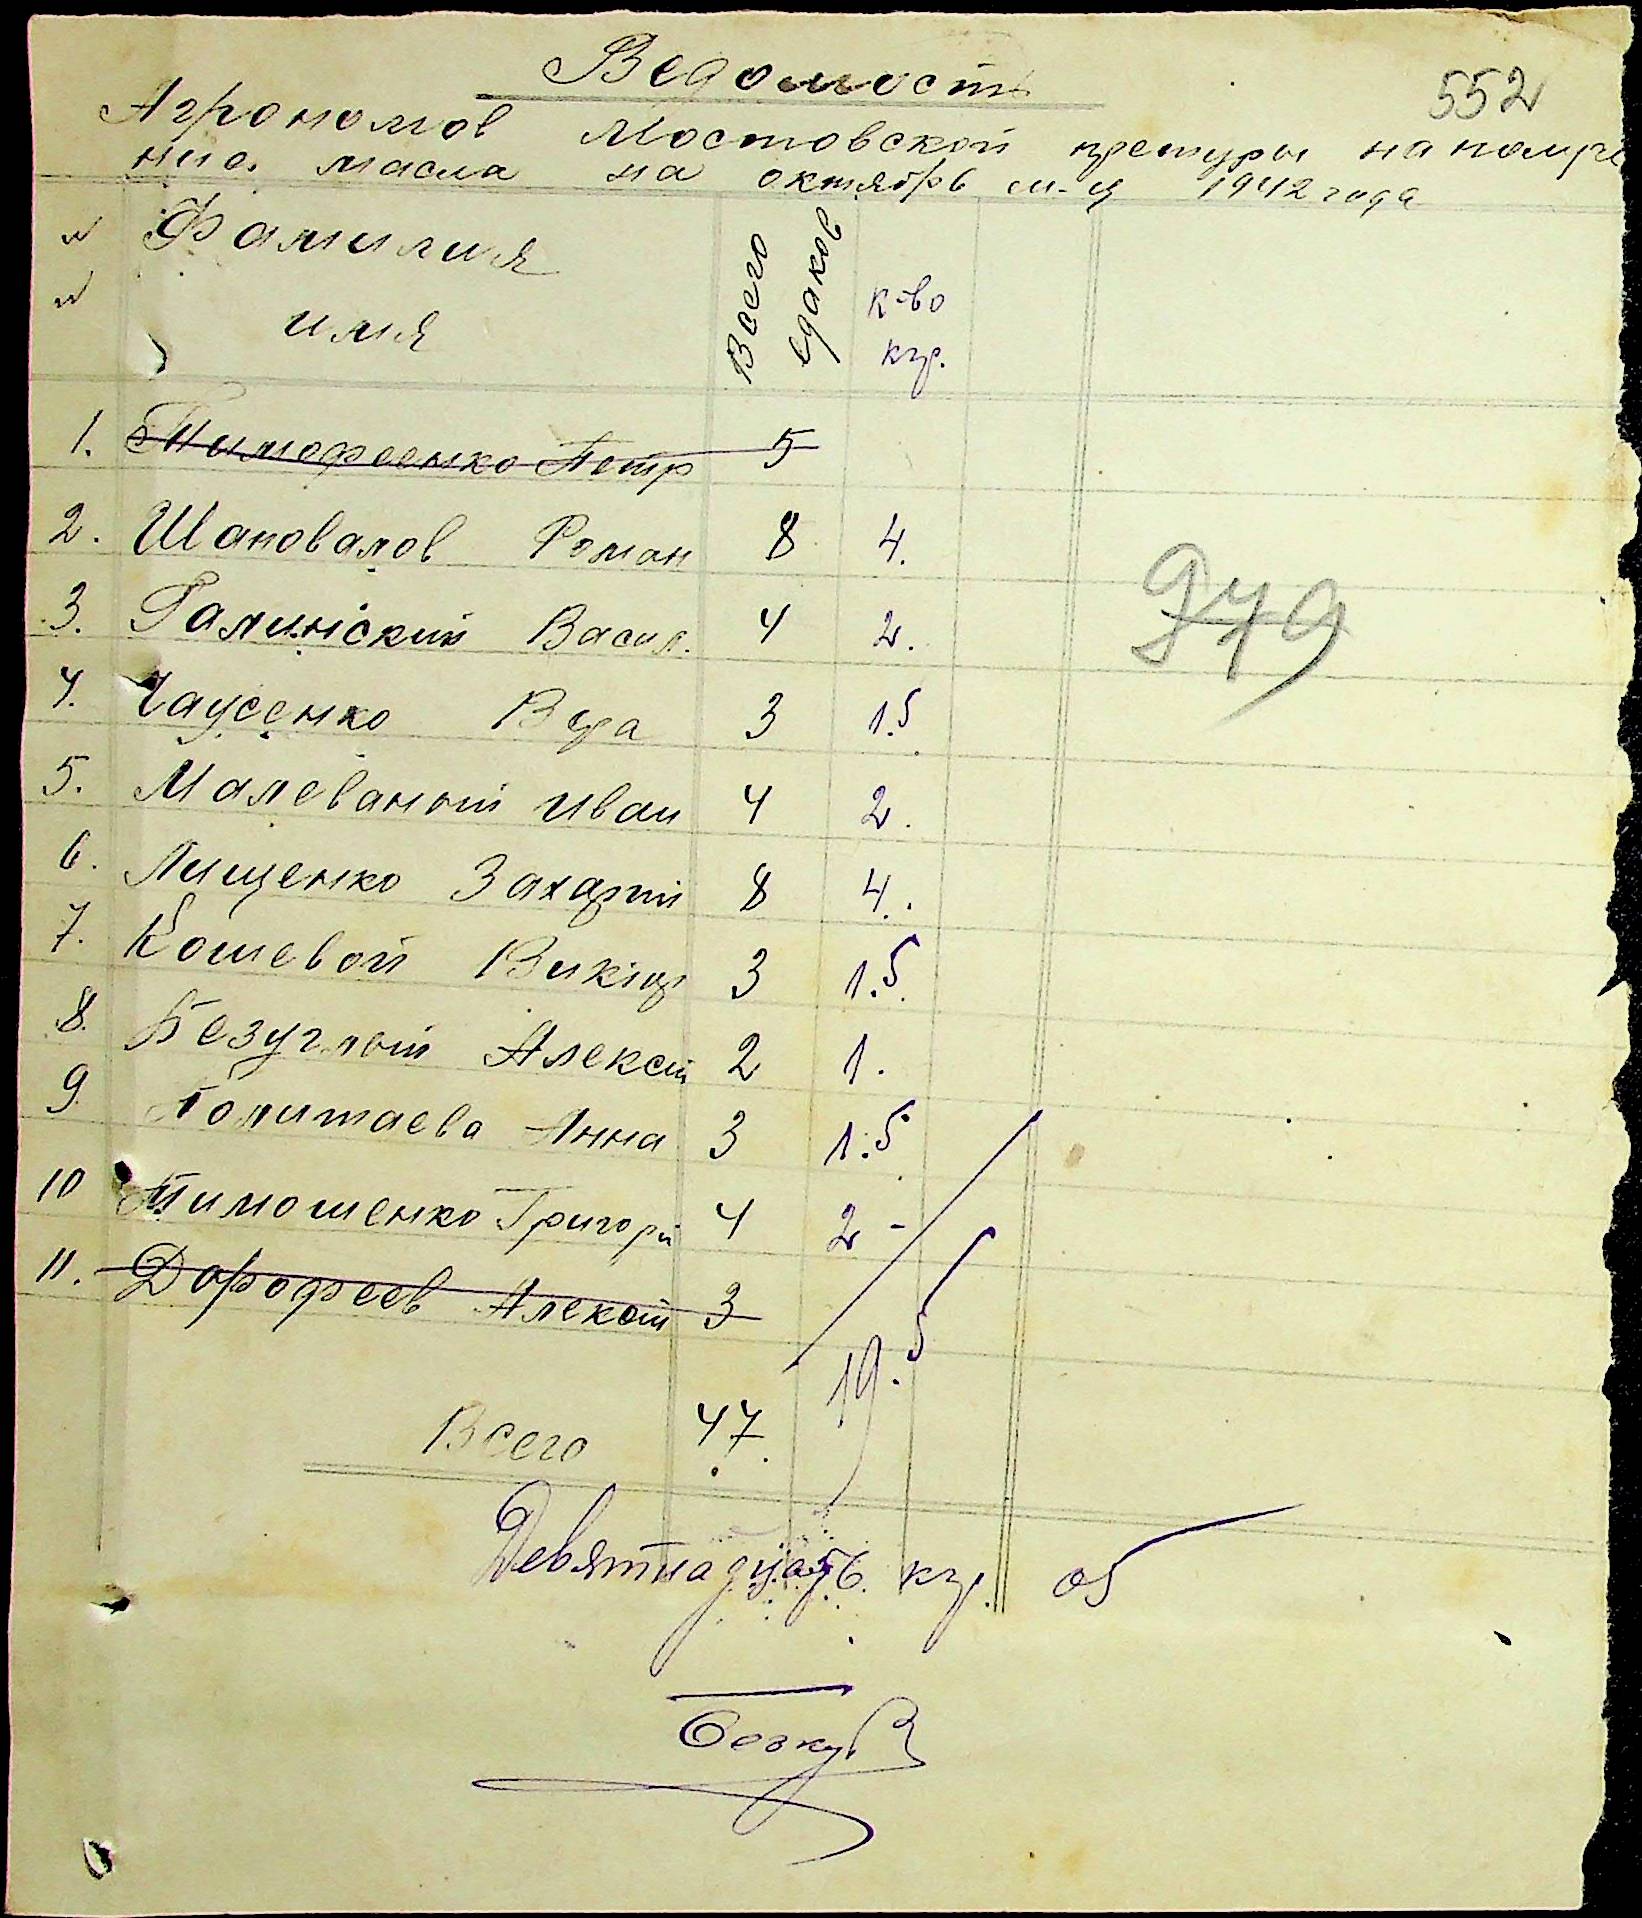 Ведомость
552
Агрономов Мостовской претуры на получе
ние масла на октябрь м-ц 1942 года
№ № Фамилия имя Всего едаков к-во кгр.
1. Тимофеенко Петр 5
2. Шаповалов Роман 8 4.
3. Галинский Васил. 4 2.
4. Чаусенко Вера 3 1.5
5. Малеваный Иван 4 2.
6. Лищенко Захарий 8 4.
7. Кошевой Виктор 3 1.5
8. Безуглый Алексей 2 1.
9. Политаева Анна 3 1.5
10 Тимошенко Григорий 4 2 -
11. Дорофеев Алексей 3
979
Всего 47. 19.5
Девятнадцать кгр. 05